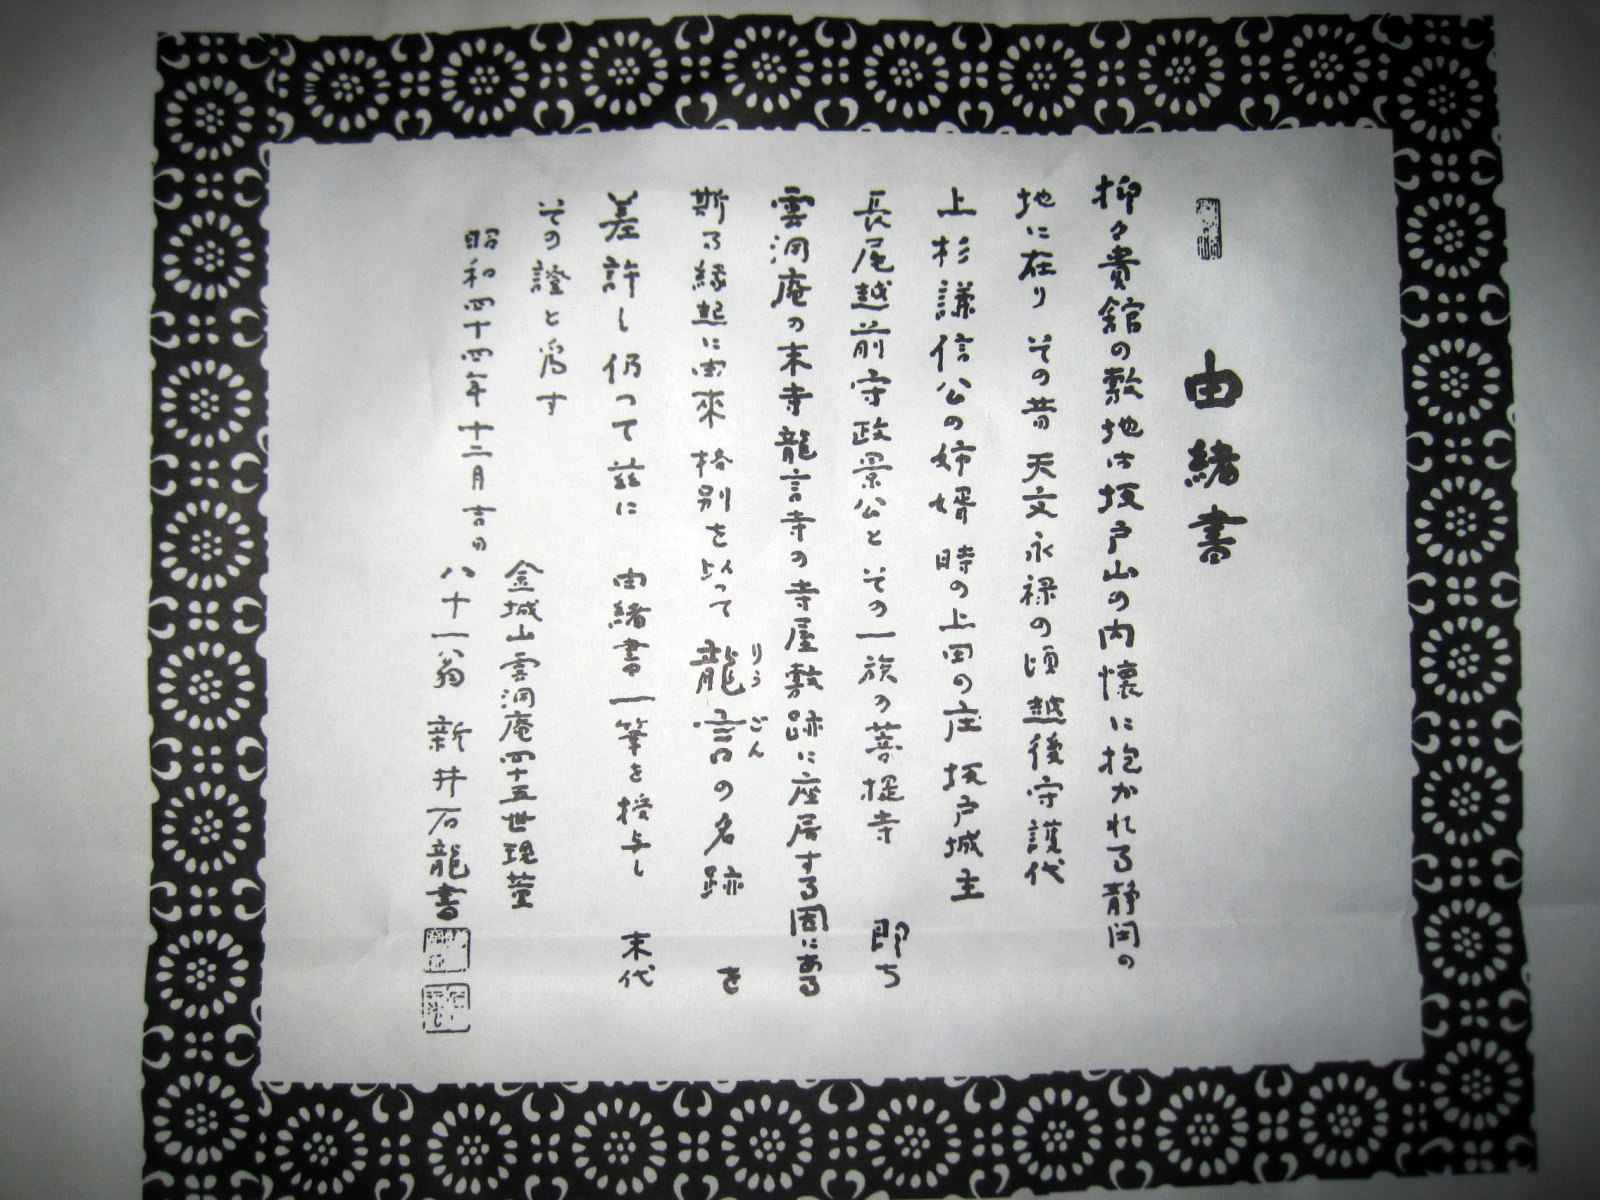 由緒書
抑々貴館の敷地は坂戸山の内懐に抱かれる静閑の
地に在り その昔 天文永禄の頃越後守護代
上杉謙信公の姉婿 時の上田の庄 坂戸城主
長尾越前守政景公とその一族の菩提寺 即ち
雲洞庵の末寺龍言寺の寺屋敷跡に座居する固にある
斯る縁起に由来 格別を以って 龍言の名跡 を
りう ごん
差許し 仍って 茲に 由緒書一筆を授与し 末代
その證と為す
昭和四十四年十二月吉日
金城山雲洞庵四十五世現董
八十一翁 新井石龍書